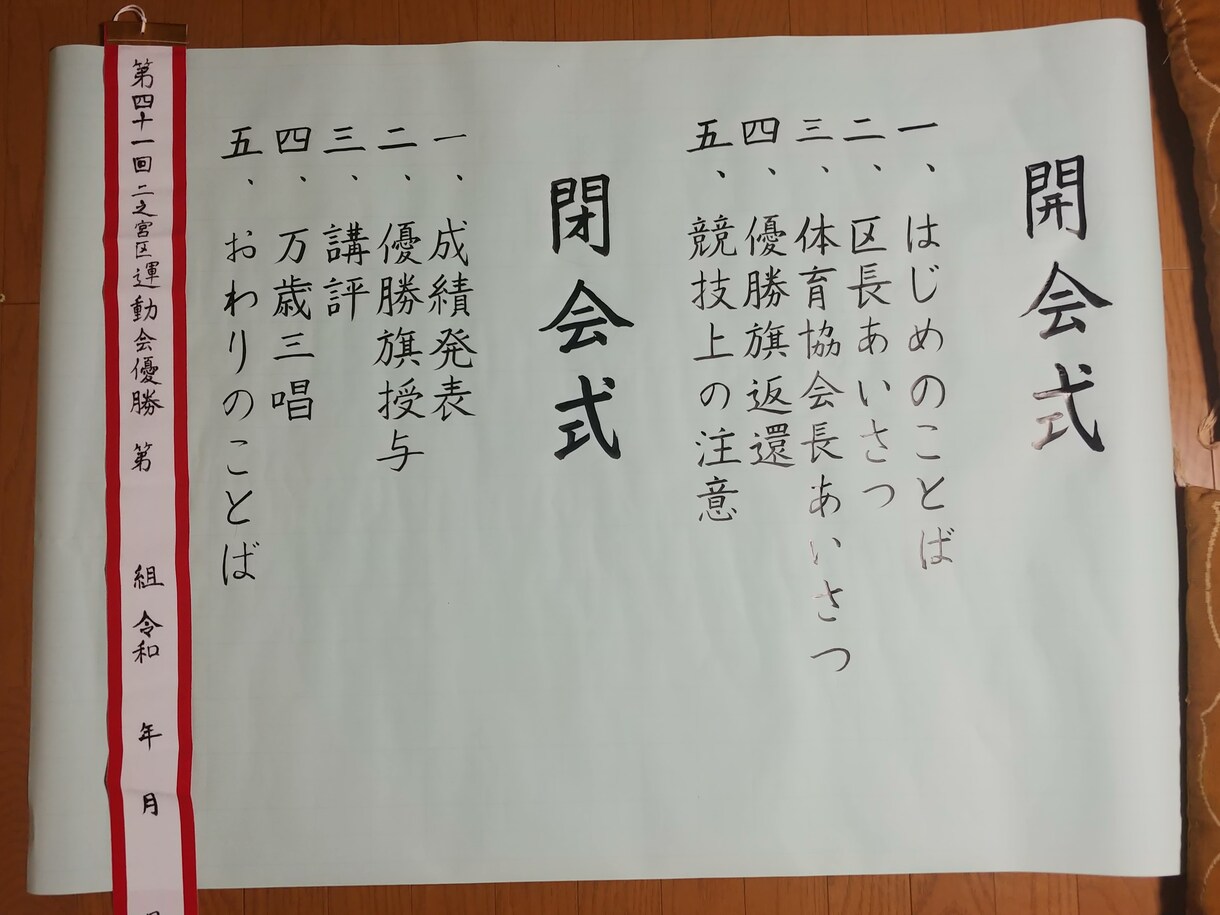 開会式
一、はじめのことば
二、区長あいさつ
三、体育協会長あいさつ
四、優勝旗返還
五、競技上の注意
閉会式
一、成績発表
二、優勝旗授与
三、講評
四、万歳三唱
五、おわりのことば
第四十一回二之宮区運動会優勝 第 組 令和 年 月